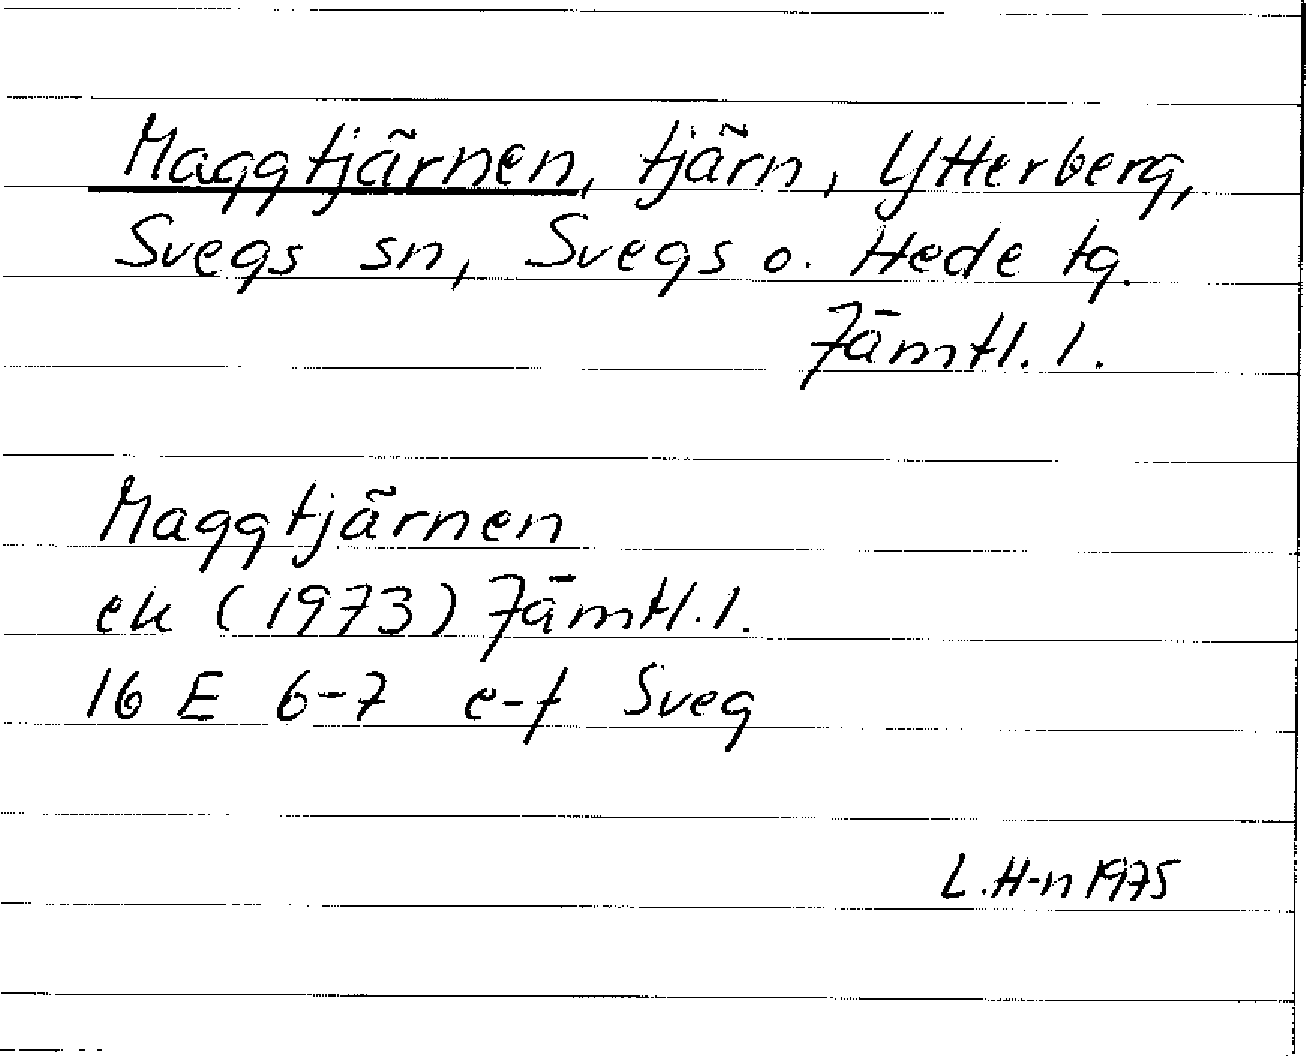 Maggtjärnen, tjärn, Ytterberg,
Svegs sn, Svegs o. Hede tg.
Jämtl. l.
Maggtjärnen
ek (1973) Jämtl. l.
16 E 6-7 e-f Sveg
L. H-n 1975